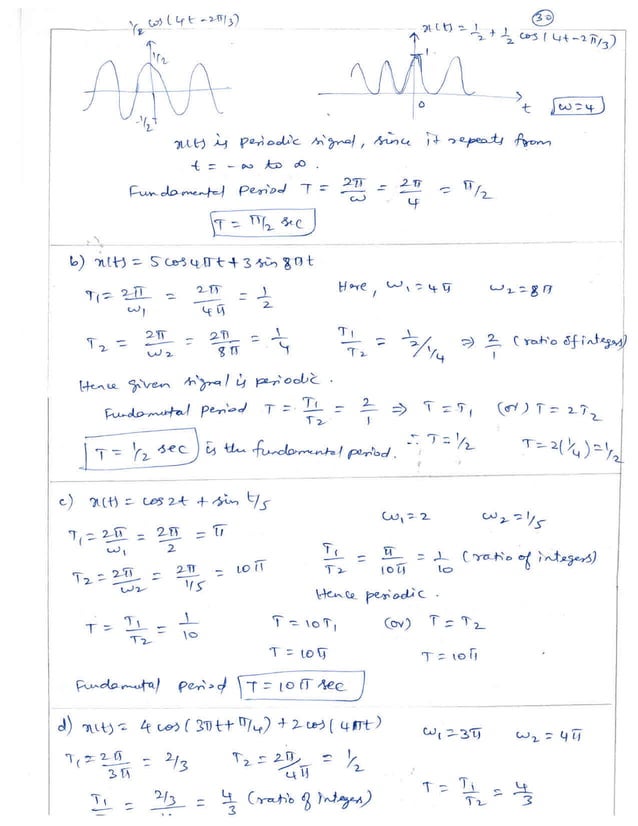 30
1/2 cos(4t-2π/3)
x(t) = 1/2 + 1/2 cos(4t-2π/3)
1/2
1
-1/2
0
t
ω=4
x(t) is periodic signal, since it repeats from
t = -∞ to ∞.
Fundamental Period T = 2π/ω = 2π/4 = π/2
T = π/2 sec
b) x(t) = 5 cos4πt + 3 sin 8πt
T1 = 2π/ω1 = 2π/4π = 1/2 Here, ω1 = 4π ω2 = 8π
T2 = 2π/ω2 = 2π/8π = 1/4 T1/T2 = 1/2/1/4 ⇒ 2/1 (ratio of integers)
Hence given signal is periodic.
Fundamutal period T = T1/T2 = 2/1 ⇒ T = T1 (or) T = 2T2
T = 1/2 sec is the fundamental period. ∴ T = 1/2 T = 2(1/4) = 1/2
c) x(t) = cos 2t + sin t/5
ω1 = 2 ω2 = 1/5
T1 = 2π/ω1 = 2π/2 = π
T1/T2 = π/10π = 1/10 (ratio of integers)
T2 = 2π/ω2 = 2π/1/5 = 10π
Hence periodic.
T = T1/T2 = 1/10 T = 10T1 (or) T = T2
T = 10π T = 10π
Fundamutal period T = 10π sec
d) x(t) = 4 cos(3πt + π/4) + 2 cos(4πt) ω1 = 3π ω2 = 4π
T1 = 2π/3π = 2/3 T2 = 2π/4π = 1/2
T1/ = 2/3/ = 4/3 (ratio of Integers) T = T1/T2 = 4/3